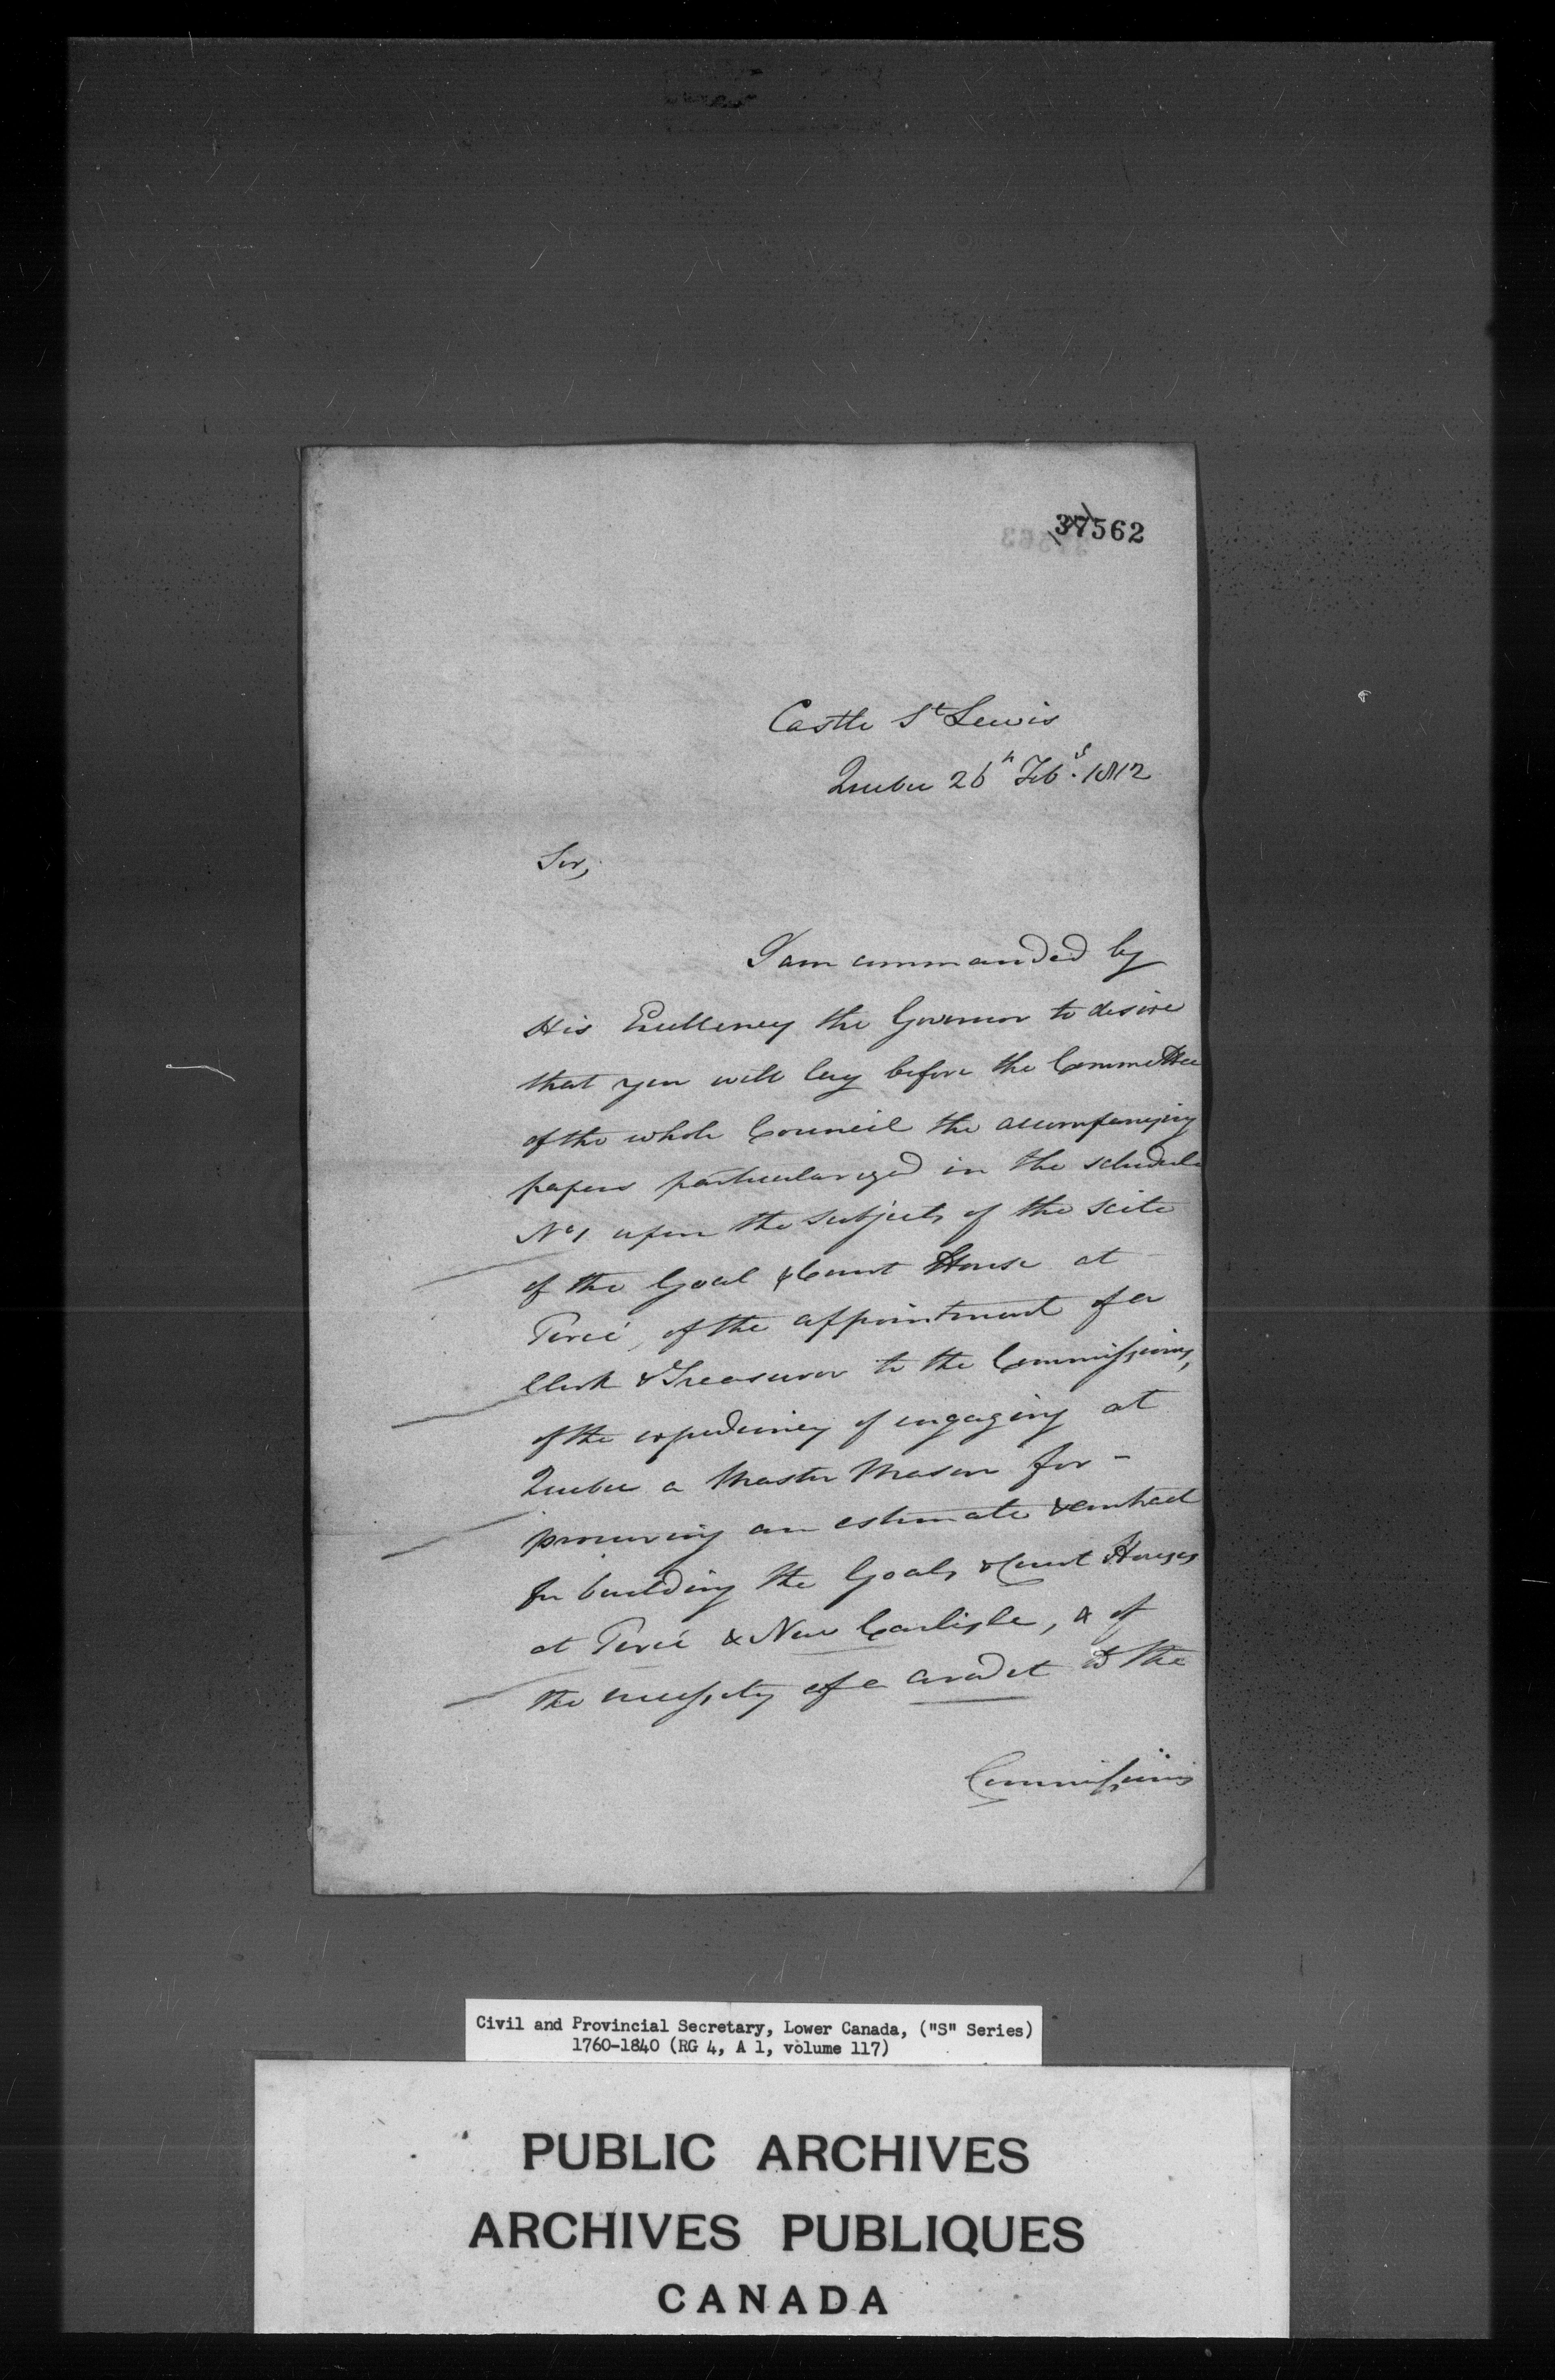 37562
Castle St Lewis
Quebec 26th Feby. 1812
Sir,
I am commanded by
His Excellency the Governor to desire
that you will lay before the Committee
of the whole Council the accompanying
papers particularized in the schedule
No 1 upon the subjects of the scite
of the Goal & Court House at
Percé, of the appointment of a
Clerk & Treasurer to the Commissioners,
of the expediency of engaging at
Quebec a Master Mason for -
procuring an estimate & contract
for building the Goals & Court Houses
at Percé & New Carlisle, & of
the necessity of a credit to the
Commissioners
Civil and Provincial Secretary, Lower Canada, ("S" Series)
1760-1840 (RG 4, A 1, volume 117)
PUBLIC ARCHIVES
ARCHIVES PUBLIQUES
CANADA